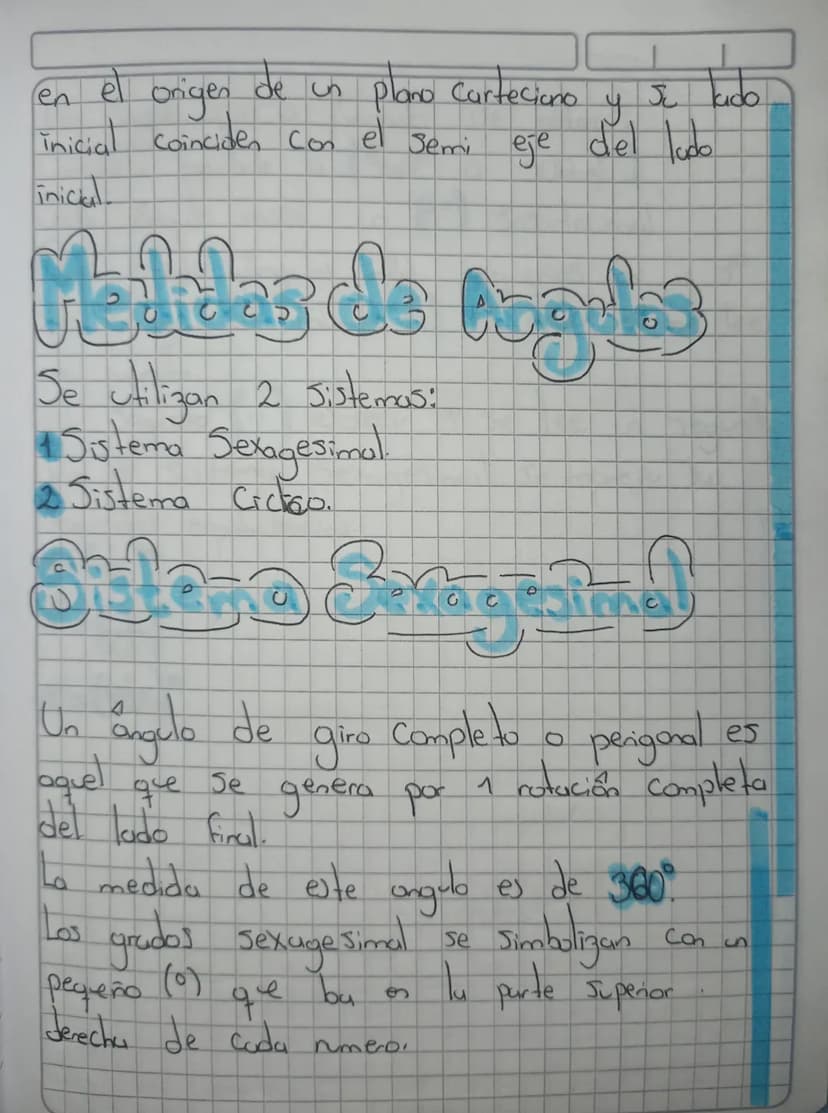 en el origen de un plano carteciano y su lado
inicial coinciden con el semi eje del lado
inicial.
Medidas de Angulos
Se utilizan 2 sistemas:
1 Sistema Sexagesimal.
2 Sistema
Sistema Sexagesimal
Un ángulo de giro completo o perigonal es
aquel que se genera por 1 rotación completa
del lado final.
La medida de este angulo es de 360°.
Los grados sexagesimal se simbolizan con un
pequeño (o) que ba en la parte superior.
derecha de cada numero.